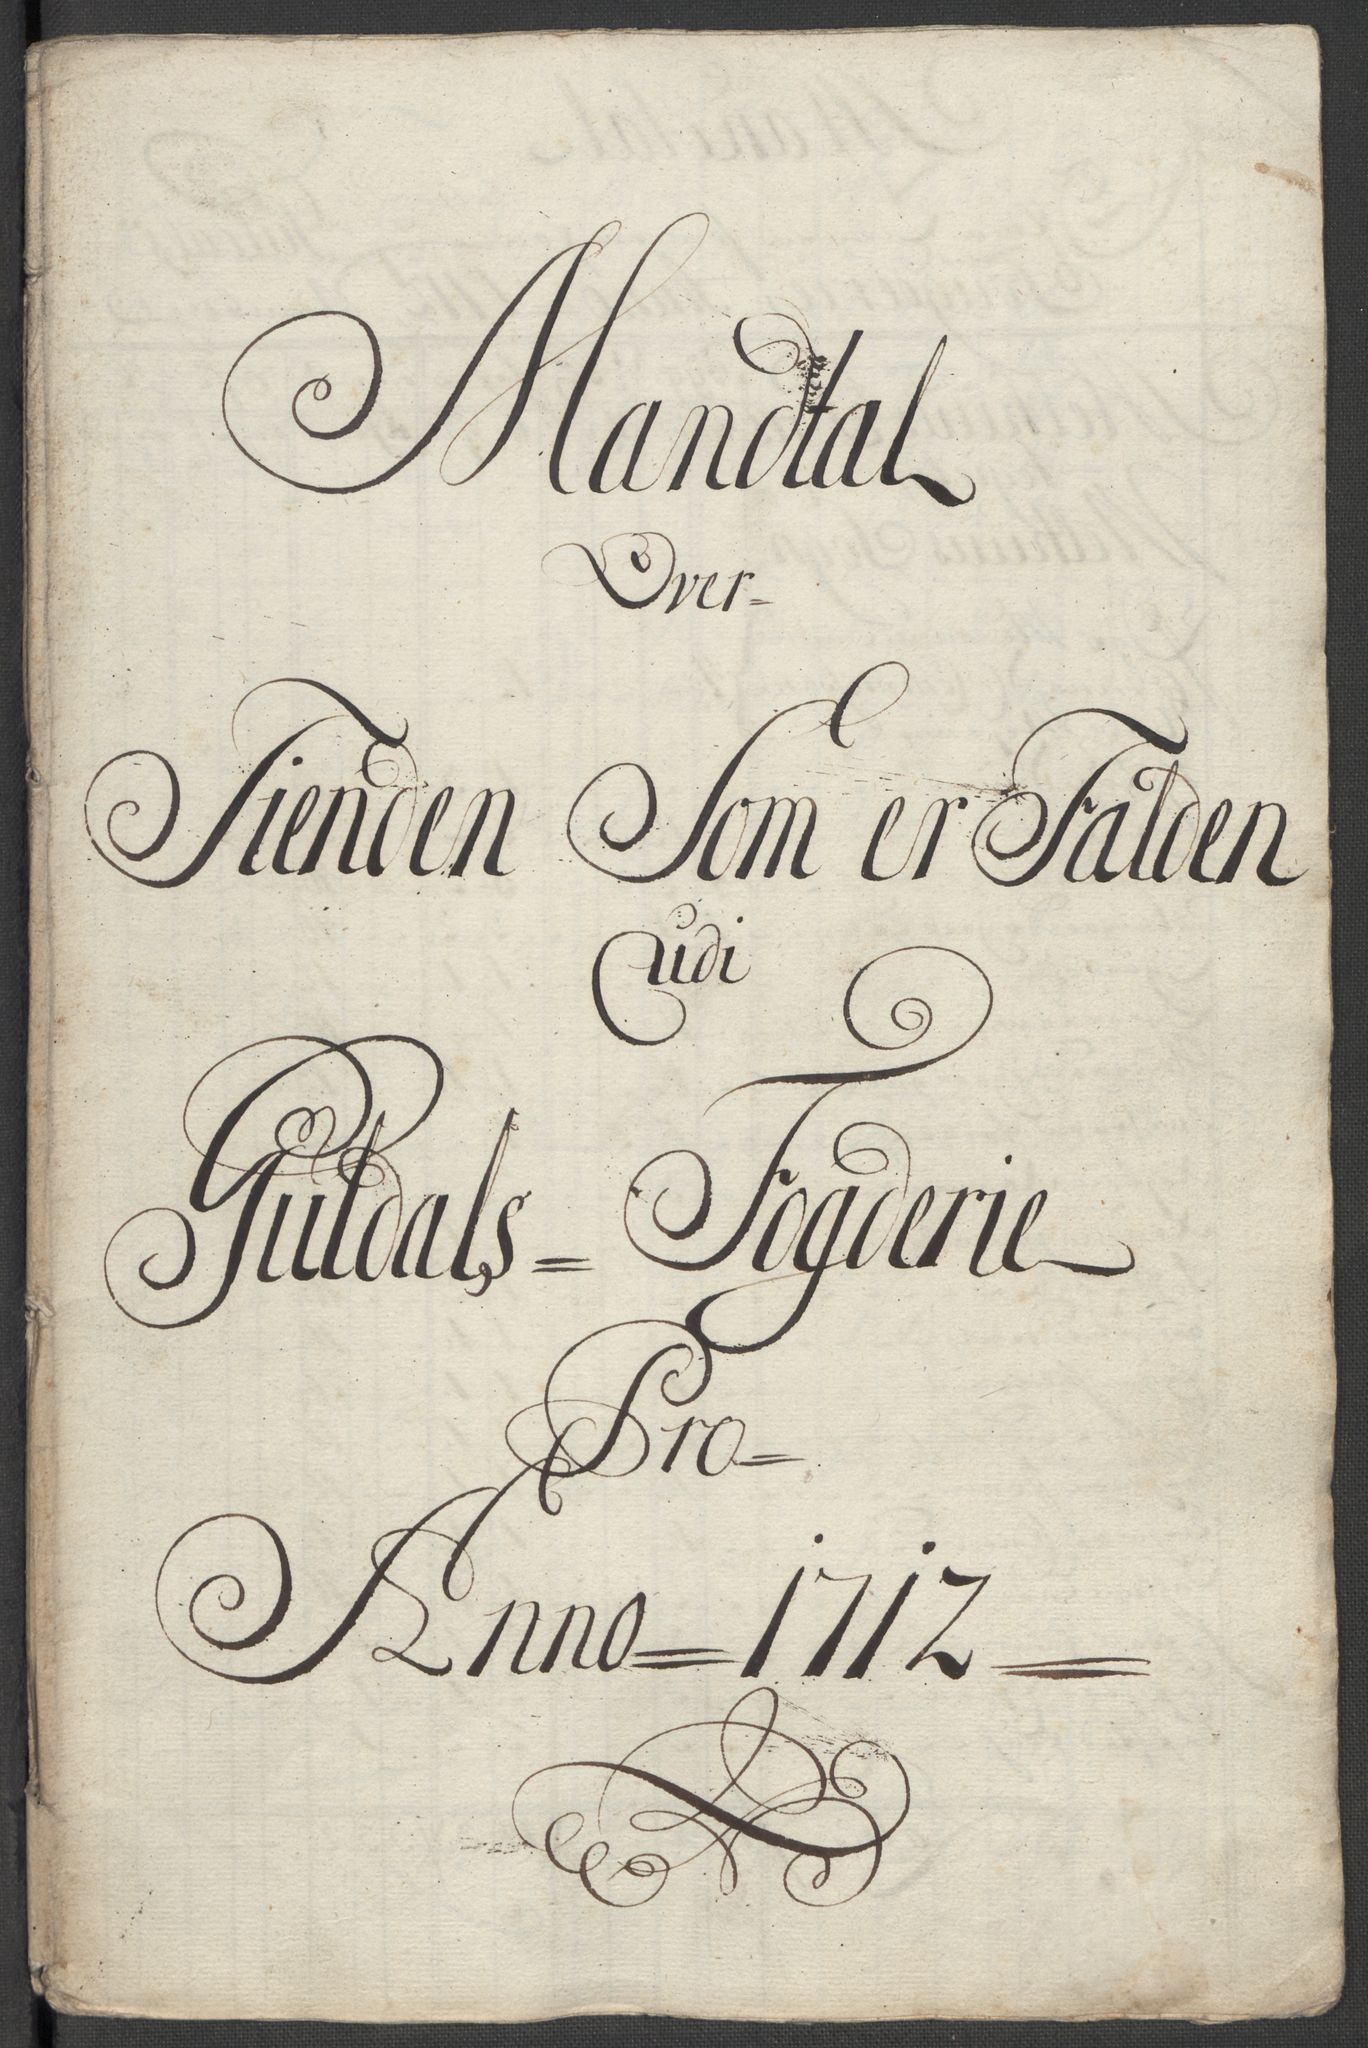 Mandtal
Over-
Tienden Som er Falden
udi
Guldals= Fogderie
Pro=
Anno= 1712=